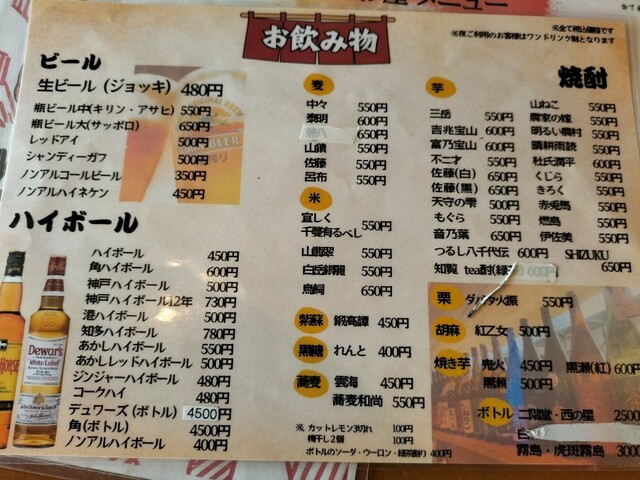 お飲み物
※全て税込価格です
※夜ご利用のお客様はワンドリンク制となります
ビール
生ビール (ジョッキ) 480円
瓶ビール中(キリン・アサヒ) 550円
瓶ビール大(サッポロ) 650円
レッドアイ 500円
シャンディーガフ 500円
ノンアルコールビール 350円
ノンアルハイネケン 450円
ハイボール
ハイボール 450円
角ハイボール 600円
神戸ハイボール 500円
神戸ハイボール12年 730円
港ハイボール 500円
知多ハイボール 780円
あかしハイボール 550円
あかしレッドハイボール 500円
ジンジャーハイボール 480円
コークハイ 480円
デュワーズ (ボトル) 4500円
角 (ボトル) 4500円
ノンアルハイボール 400円
Dewar's
White Label
焼酎
麦
中々 550円
泰明 600円
650円
山猿 550円
佐藤 550円
呂布 550円
米
宜しく
千萬有るべし 550円
山翡翠 550円
白岳銀麗 550円
鳥飼 650円
紫蘇 鍛高譚 450円
黒糖 れんと 400円
蕎麦 雲海 450円
蕎麦和尚 550円
※ カットレモン3切れ 100円
梅干し2個 100円
ボトルのソーダ・ウーロン・緑茶割り 400円
芋
三岳 550円
吉兆宝山 600円
富乃宝山 600円
不二才 550円
佐藤(白) 600円
佐藤(黒) 650円
天守の雫 500円
もぐら 550円
音乃葉 650円
山ねこ 550円
農家の嫁 550円
明るい農村 550円
晴耕雨読 550円
杜氏潤平 600円
くじら 550円
きろく 550円
赤兎馬 550円
燃島 550円
伊佐美 550円
つるし八千代伝 600円
SHIZUKU 650円
知覧 tea酎(緑 600円
栗 ダバダ火振 550円
胡麻 紅乙女 500円
焼き芋 鬼火 450円
黒瀬(紅) 600円
黒瀬 500円
ボトル 二階堂・西の星 2500
霧島・虎斑霧島 3000